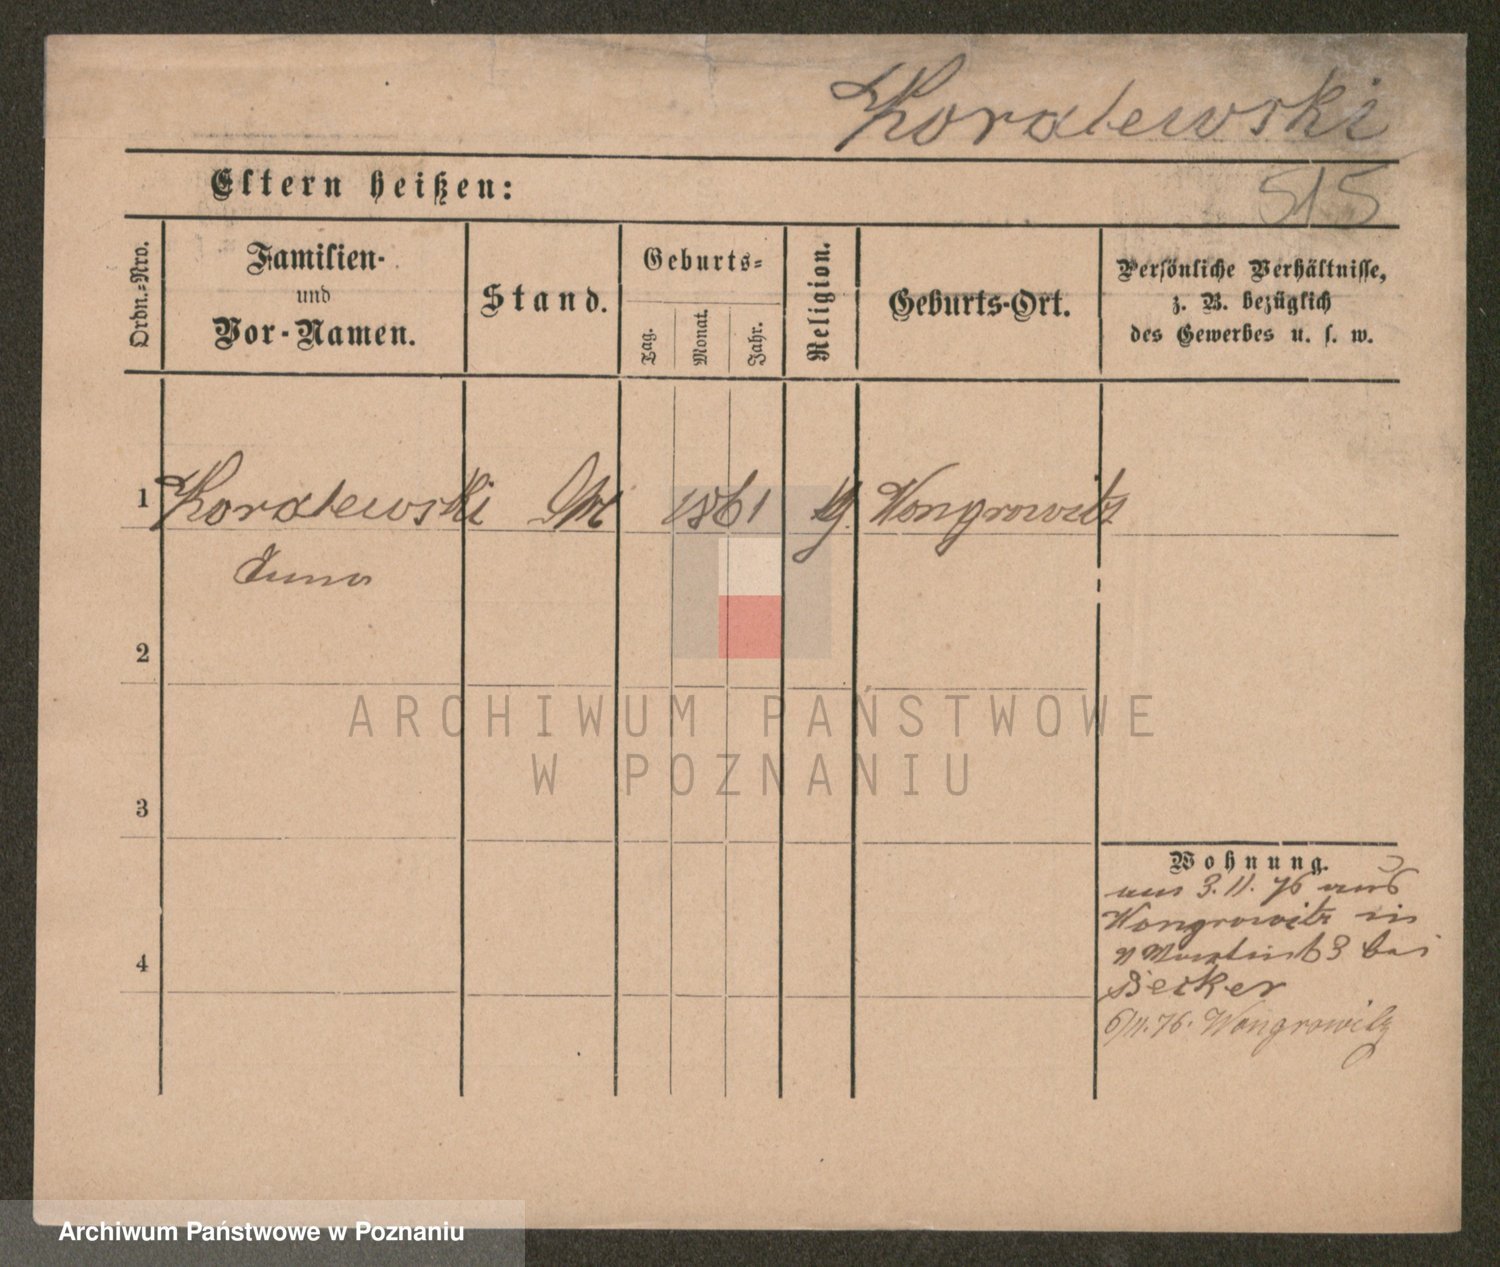 Koralewski
Eltern heißen: 515
Ordn.-Nro.
Familien-
und
Vor-Namen.
Stand.
Geburts-
Tag.
Monat.
Jahr.
Religion.
Geburts-Ort.
Persönliche Verhältnisse,
z. B. bezüglich
des Gewerbes u. s. w.
1 Koralewski 1861 Wongrowitz
Anna
2
ARCHIWUM PAŃSTWOWE
W POZNANIU
3
Wohnung.
3.11.76 aus
Wongrowitz in
3 bei
Becker
4
6/11.76. Wongrowitz
Archiwum Państwowe w Poznaniu